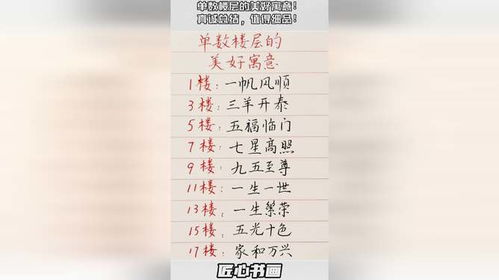 单数楼层的美好寓意！
真诚总结，值得细品！
单数楼层的
美好寓意
1楼：一帆风顺
3楼：三羊开泰
5楼：五福临门
7楼：七星高照
9楼：九五至尊
11楼：一生一世
13楼，一生繁荣
15楼，五光十色
17楼：家和万兴
匠心书画